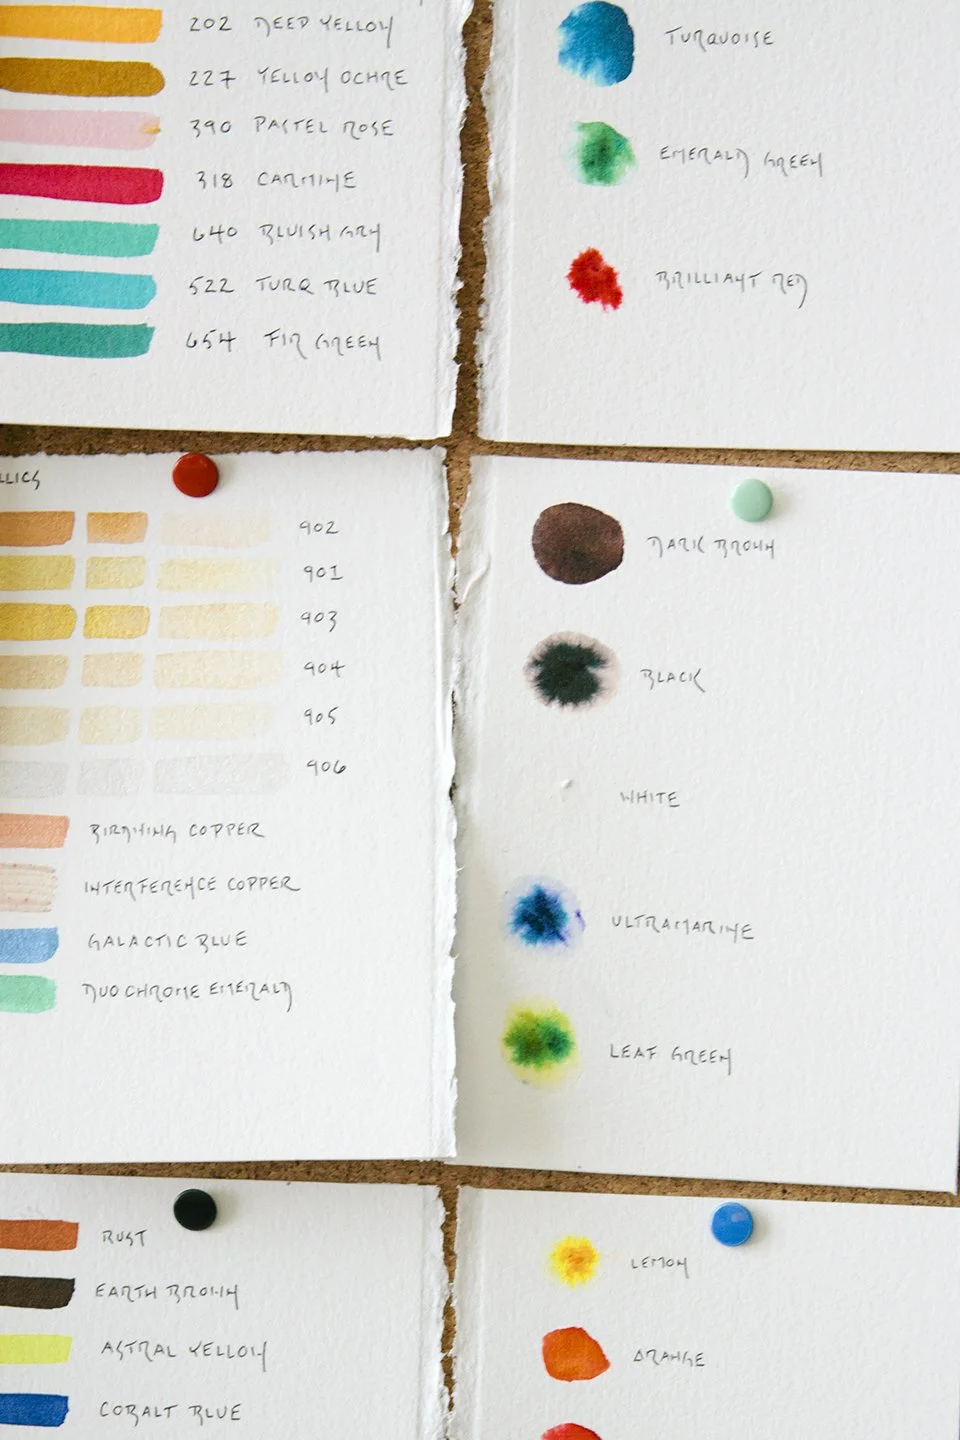 202 DEEP YELLOW
227 YELLOW OCHRE
390 PASTEL ROSE
318 CARMINE
640 BLUISH GRY
522 TURQ BLUE
654 FIR GREEN
TURQUOISE
EMERALD GREEN
BRILLIANT RED
LLICS
902
901
903
904
905
906
INTERFERENCE COPPER
GALACTIC BLUE
DUOCHROME EMERALD
COPPER
DARK BROWN
BLACK
WHITE
ULTRAMARINE
LEAF GREEN
RUST
EARTH BROWN
ASTRAL YELLOW
COBALT BLUE
LEMON
ORANGE